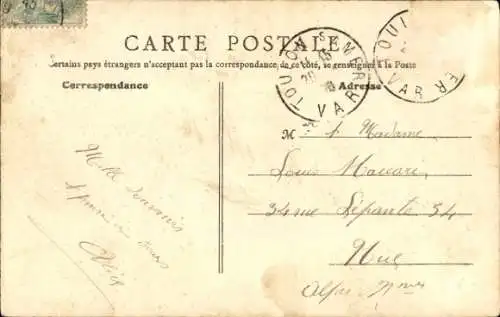 CARTE POSTALE
Certains pays étrangers n'acceptant pas la correspondance de ce côté, se renseigner à la Poste
Correspondance
Adresse
TOULON S MER
VAR
TOUL
ER
VAR
M & Madame
Louis Macari
34 rue Lépante 34
Nice
Alpes Mmes
Mille souvenirs